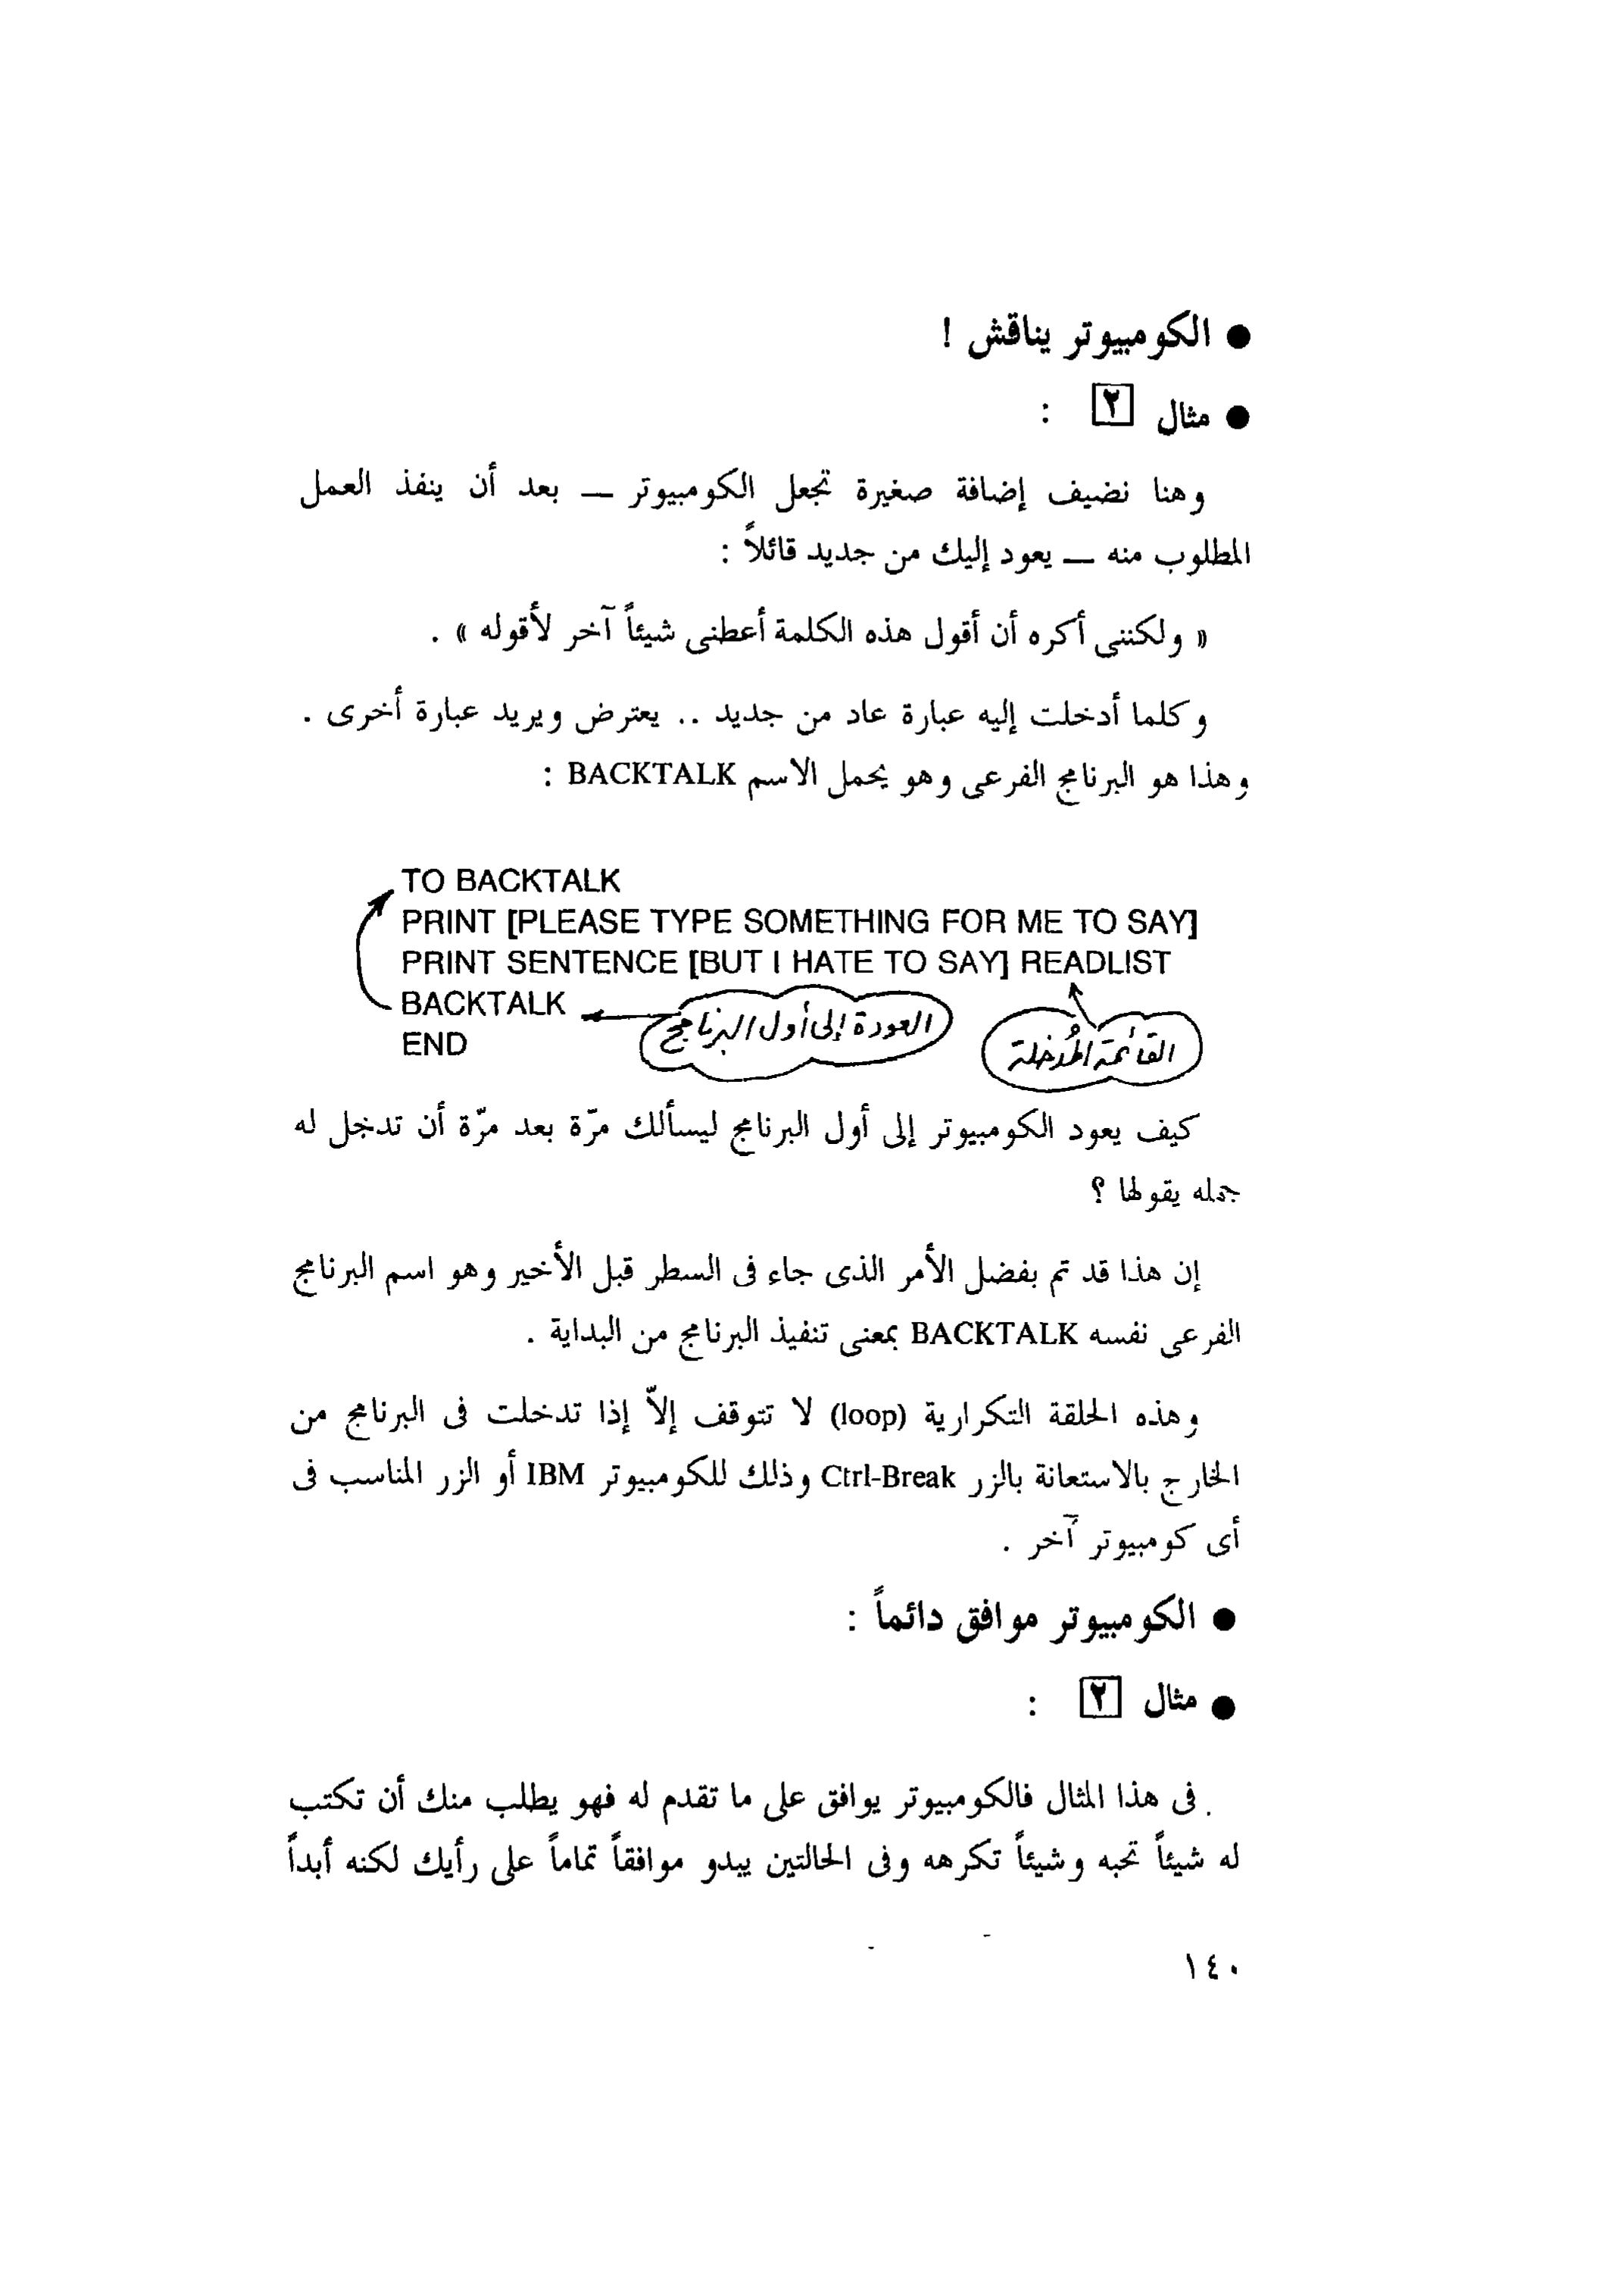 ● الكومبيوتر يناقش !
● مثال ٢ :
وهنا نضيف إضافة صغيرة تجعل الكومبيوتر — بعد أن ينفذ العمل
المطلوب منه — يعود إليك من جديد قائلاً :
« ولكننى أكره أن أقول هذه الكلمة أعطنى شيئاً آخر لأقوله » .
وكلما أدخلت إليه عبارة عاد من جديد .. يعترض ويريد عبارة أخرى .
وهذا هو البرنامج الفرعى وهو يحمل الاسم BACKTALK :
TO BACKTALK
PRINT [PLEASE TYPE SOMETHING FOR ME TO SAY]
PRINT SENTENCE [BUT I HATE TO SAY] READLIST
BACKTALK
العودة إلى أول البرنامج
القائمة المُدخلة
END
كيف يعود الكومبيوتر إلى أول البرنامج ليسألك مرّة بعد مرّة أن تدخل له
جمله يقولها ؟
إن هذا قد تم بفضل الأمر الذى جاء فى السطر قبل الأخير وهو اسم البرنامج
الفرعى نفسه BACKTALK بمعنى تنفيذ البرنامج من البداية .
وهذه الحلقة التكرارية (loop) لا تتوقف إلاّ إذا تدخلت فى البرنامج من
الخارج بالاستعانة بالزر Ctrl-Break وذلك للكومبيوتر IBM أو الزر المناسب فى
أى كومبيوتر آخر .
● الكومبيوتر موافق دائماً :
● مثال ٢ :
فى هذا المثال فالكومبيوتر يوافق على ما تقدم له فهو يطلب منك أن تكتب
له شيئاً تحبه وشيئاً تكرهه وفى الحالتين يبدو موافقاً تماماً على رأيك لكنه أبداً
١٤٠